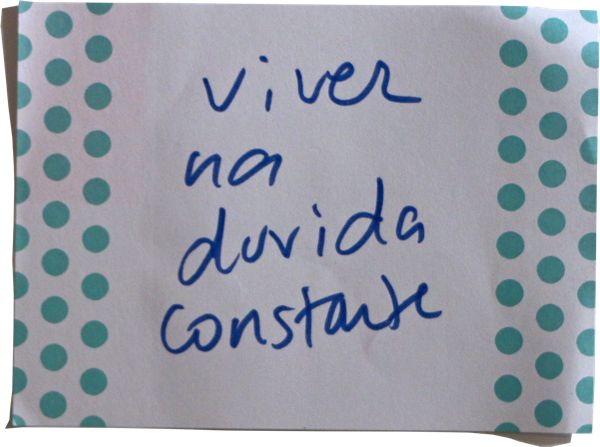 viver
na
duvida
constante